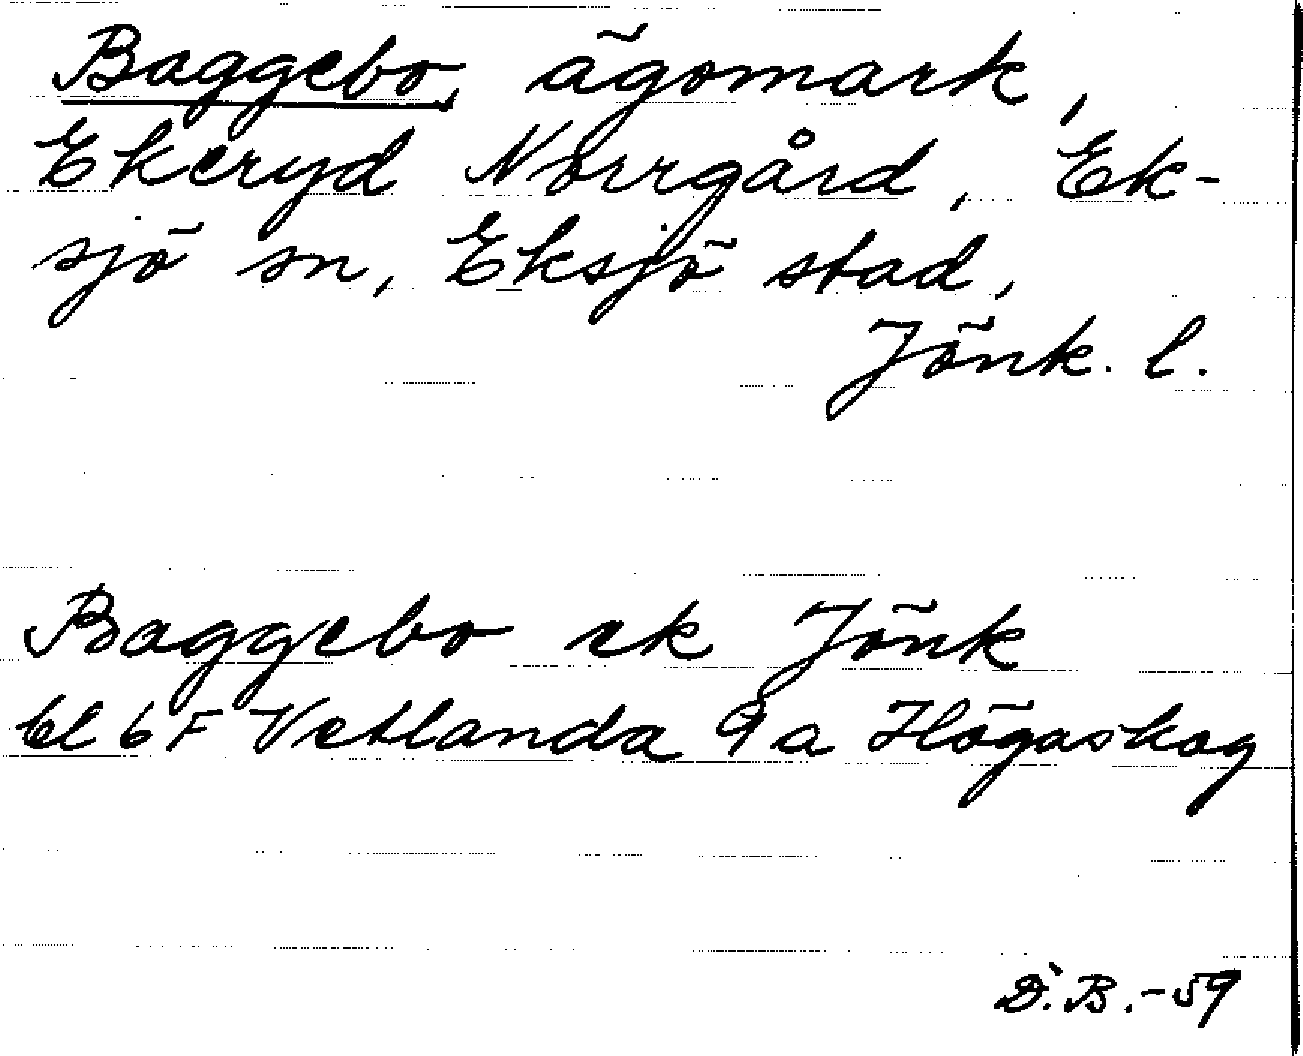 Baggebo, ägomark,
Ekeryd Norrgård, Ek-
sjö sn, Eksjö stad,
Jönk. l.
Baggebo ek Jönk
bl 6 F Vetlanda 9 a Högaskog
D. B. -59